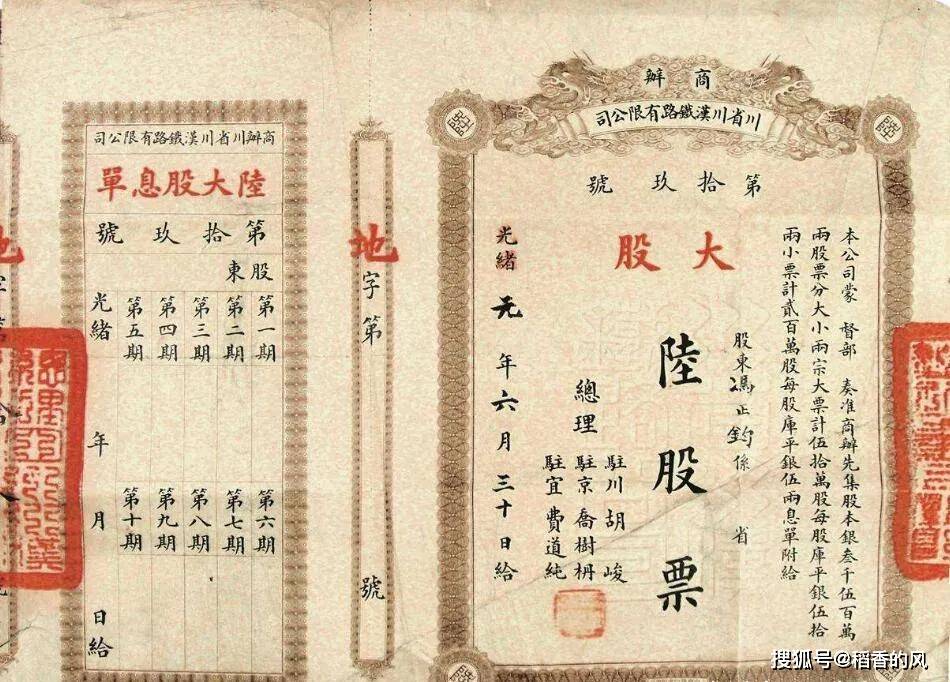 商辦
川省川漢鐵路有限公司
第拾玖號
本公司蒙 督部 奏准商辦先集股本銀叁千伍百萬
兩股票分大小兩宗大票計伍拾萬股每股庫平銀伍拾
兩小票計貳百萬股每股庫平銀伍兩息單附給
大股
股東馮正鈞係 省
陸股票
總理
駐川胡峻
駐京喬樹枏
駐宜費道純
光緒元年六月三十日給
地字第 號
商辦川省川漢鐵路有限公司
陸大股息單
第拾玖號
股東
第一期
第二期
第三期
第四期
第五期
第六期
第七期
第八期
第九期
第十期
光緒 年 月 日給
地字
搜狐号@稻香的风